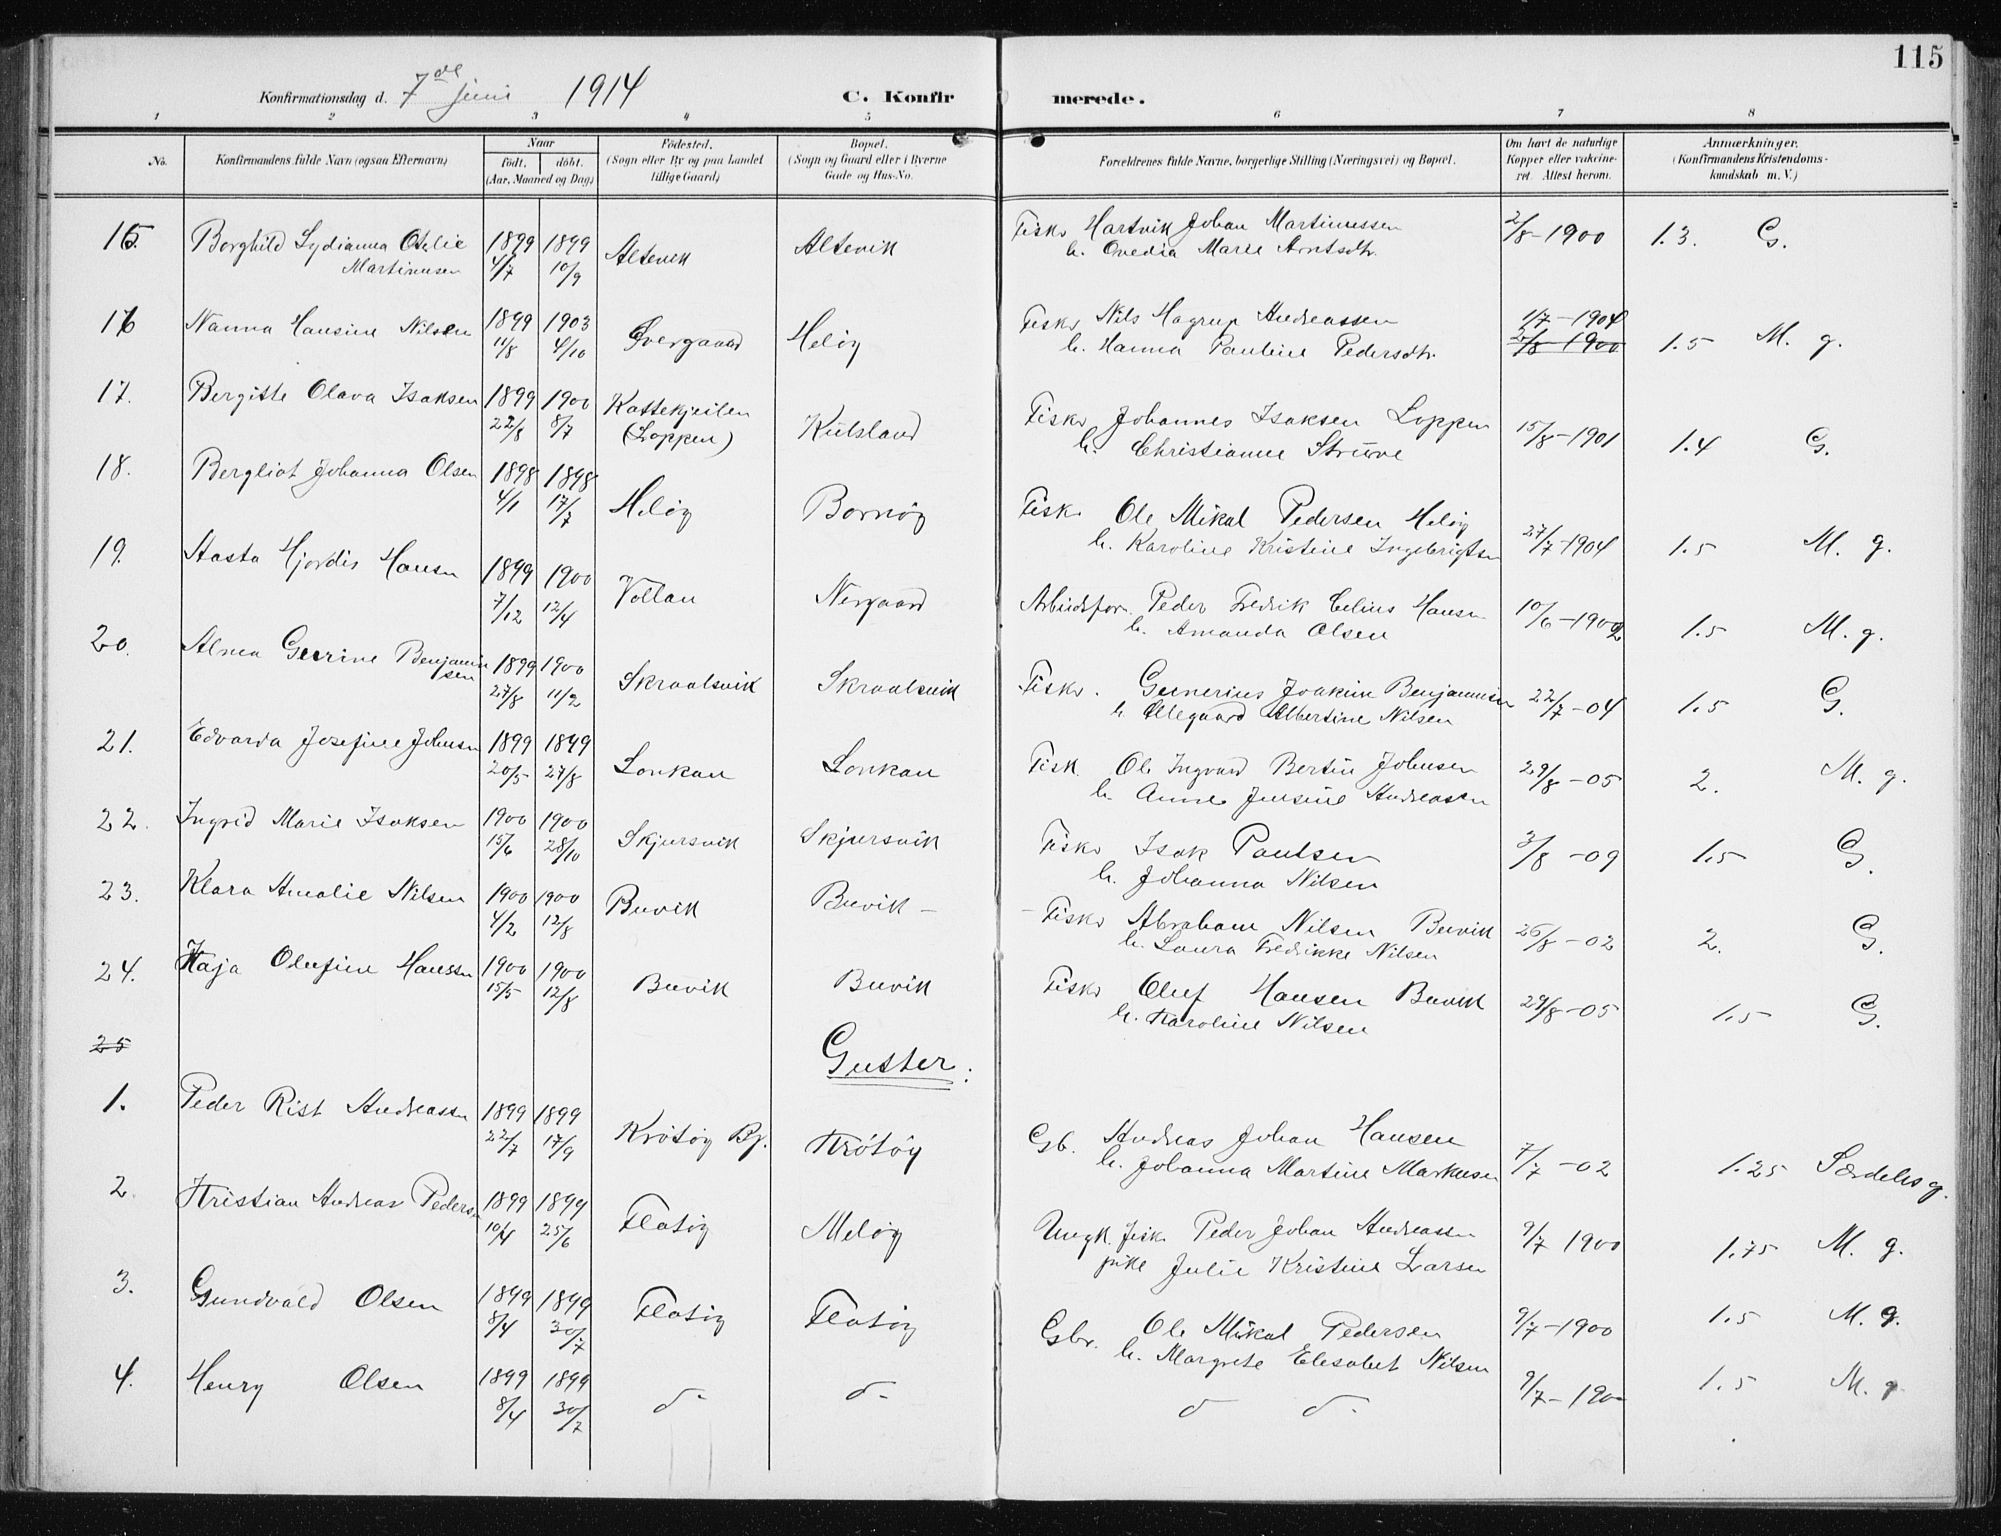 115
Konfirmationsdag d. 7de juni 1914 C. Konfirmerede.
1 2 3 4 5 6 7 8
No. Konfirmandens fulde Navn (ogsaa Efternavn) Naar født, døbt. (Aar, Maaned og Dag) Fødested. (Sogn eller By og paa Landet tillige Gaard) Bopæl. (Sogn og Gaard eller i Byerne Gade og Hus-No. Forældrenes fulde Navne, borgerlige Stilling (Næringsvei) og Bopæl. Om havt de naturlige Kopper eller vakcineret. Attest herom. Anmærkninger. (Konfirmandens Kristendomskundskab m. V.)
15 Borghild Lydianna Otelie 1899 1899 Altevik Altevik Fisker Hartvik Johan Martinussen 2/8-1900 1.3. G.
Martinusen 4/7 10/9 h. Ovedia Marie Arntsdtr.
16 Nanna Hansine Nilsen 1899 1903 Øvergaard Meløy Fisker Nils Hagrup Andreassen 1/7-1904
11/8 4/10 h. Hanna Pauline Pedersdtr. 2/8-1900 1.5 M. g.
17. Bergitte Olava Isaksen 1899 1900 Kattekjeilen Kulsland Fisker Johannes Isaksen Loppen 15/8-1901 1.4 G.
22/8 8/7 (Loppen) h. Christianne Struve
18. Bergliot Johanna Olsen 1898 1898 Meløy Bornøy Fisk. Ole Mikal Pedersen Meløy 27/7-1904 1.5 M. g.
4/1 17/7 h. Karoline Kristine Ingebrigtsen
19. Aasta Hjørdis Hansen 1899 1900 Vollan Nergaard Arbeidsfor. Peder Fredrik Celius Hansen 10/6-1902 1.5 M. g.
7/12 12/4 h. Amanda Olsen
20. Alma Gerrine Benjaminsen 1899 1900 Skraalsvik Skraalsvik Fisker. Gunerius Joakim Benjaminsen 22/7-04 1.5 G.
27/8 11/2 h. Ellegaard Albertine Nilsen
21. Edvarda Josefine Johnsen 1899 1899 Lonkan Lonkan Fisk. Ole Ingvard Bertin Johnsen 29/8-05 2. M. g.
20/5 27/8 h. Anne Jensine Andreasen
22. Ingrid Marie Isaksen 1900 1900 Skjærsvik Skjærsvik Fisker Isak Paulsen 3/8-09 1.5 G.
15/6 28/10 h. Johanna Nilsen
23. Klara Amalie Nilsen 1900 1900 Buvik Buvik - - Fisker Abraham Nilsen Buvik 26/8-02 2. G.
4/2 12/8 h. Laura Fredrikke Nilsen
24. Kaja Olufine Hansen 1900 1900 Buvik Buvik Fisker Oluf Hansen Buvik 29/8-05 1.5 G.
15/5 12/8 h. Karoline Nilsen
25
Gutter:
1. Peder Rist Andreassen 1899 1899 Krøtøy Bj. Krøtøy Gb. Andreas Johan Hansen 7/7-02 1.25 Særdeles g.
22/7 17/9 h. Johanna Martine Markusen
2. Kristian Andreas Pedersen 1899 1899 Flatøy Meløy Ungk. fisk. Peder Johan Andreassen 9/7 1900 1.75 M. g.
10/4 25/6 pike Julie Kristine Larsen
3. Gundvald Olsen 1899 1899 Flatøy Flatøy Gbr. Ole Mikal Pedersen 9/7-1900 1.5 M. g.
8/4 30/7 h. Margrete Elesabet Nilsen
4. Henry Olsen 1899 1899 d- d- d d- 9/7-190- 1.5 M. g
8/4 30/7